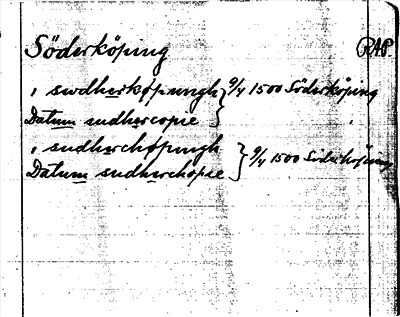 Söderköping RAP.
, swdherkøpungh } 9/4 1500 Söderköping
Datum sudhercopie
, sudherchøpungh } 9/4 1500 Söderköping
Datum sudherchopie